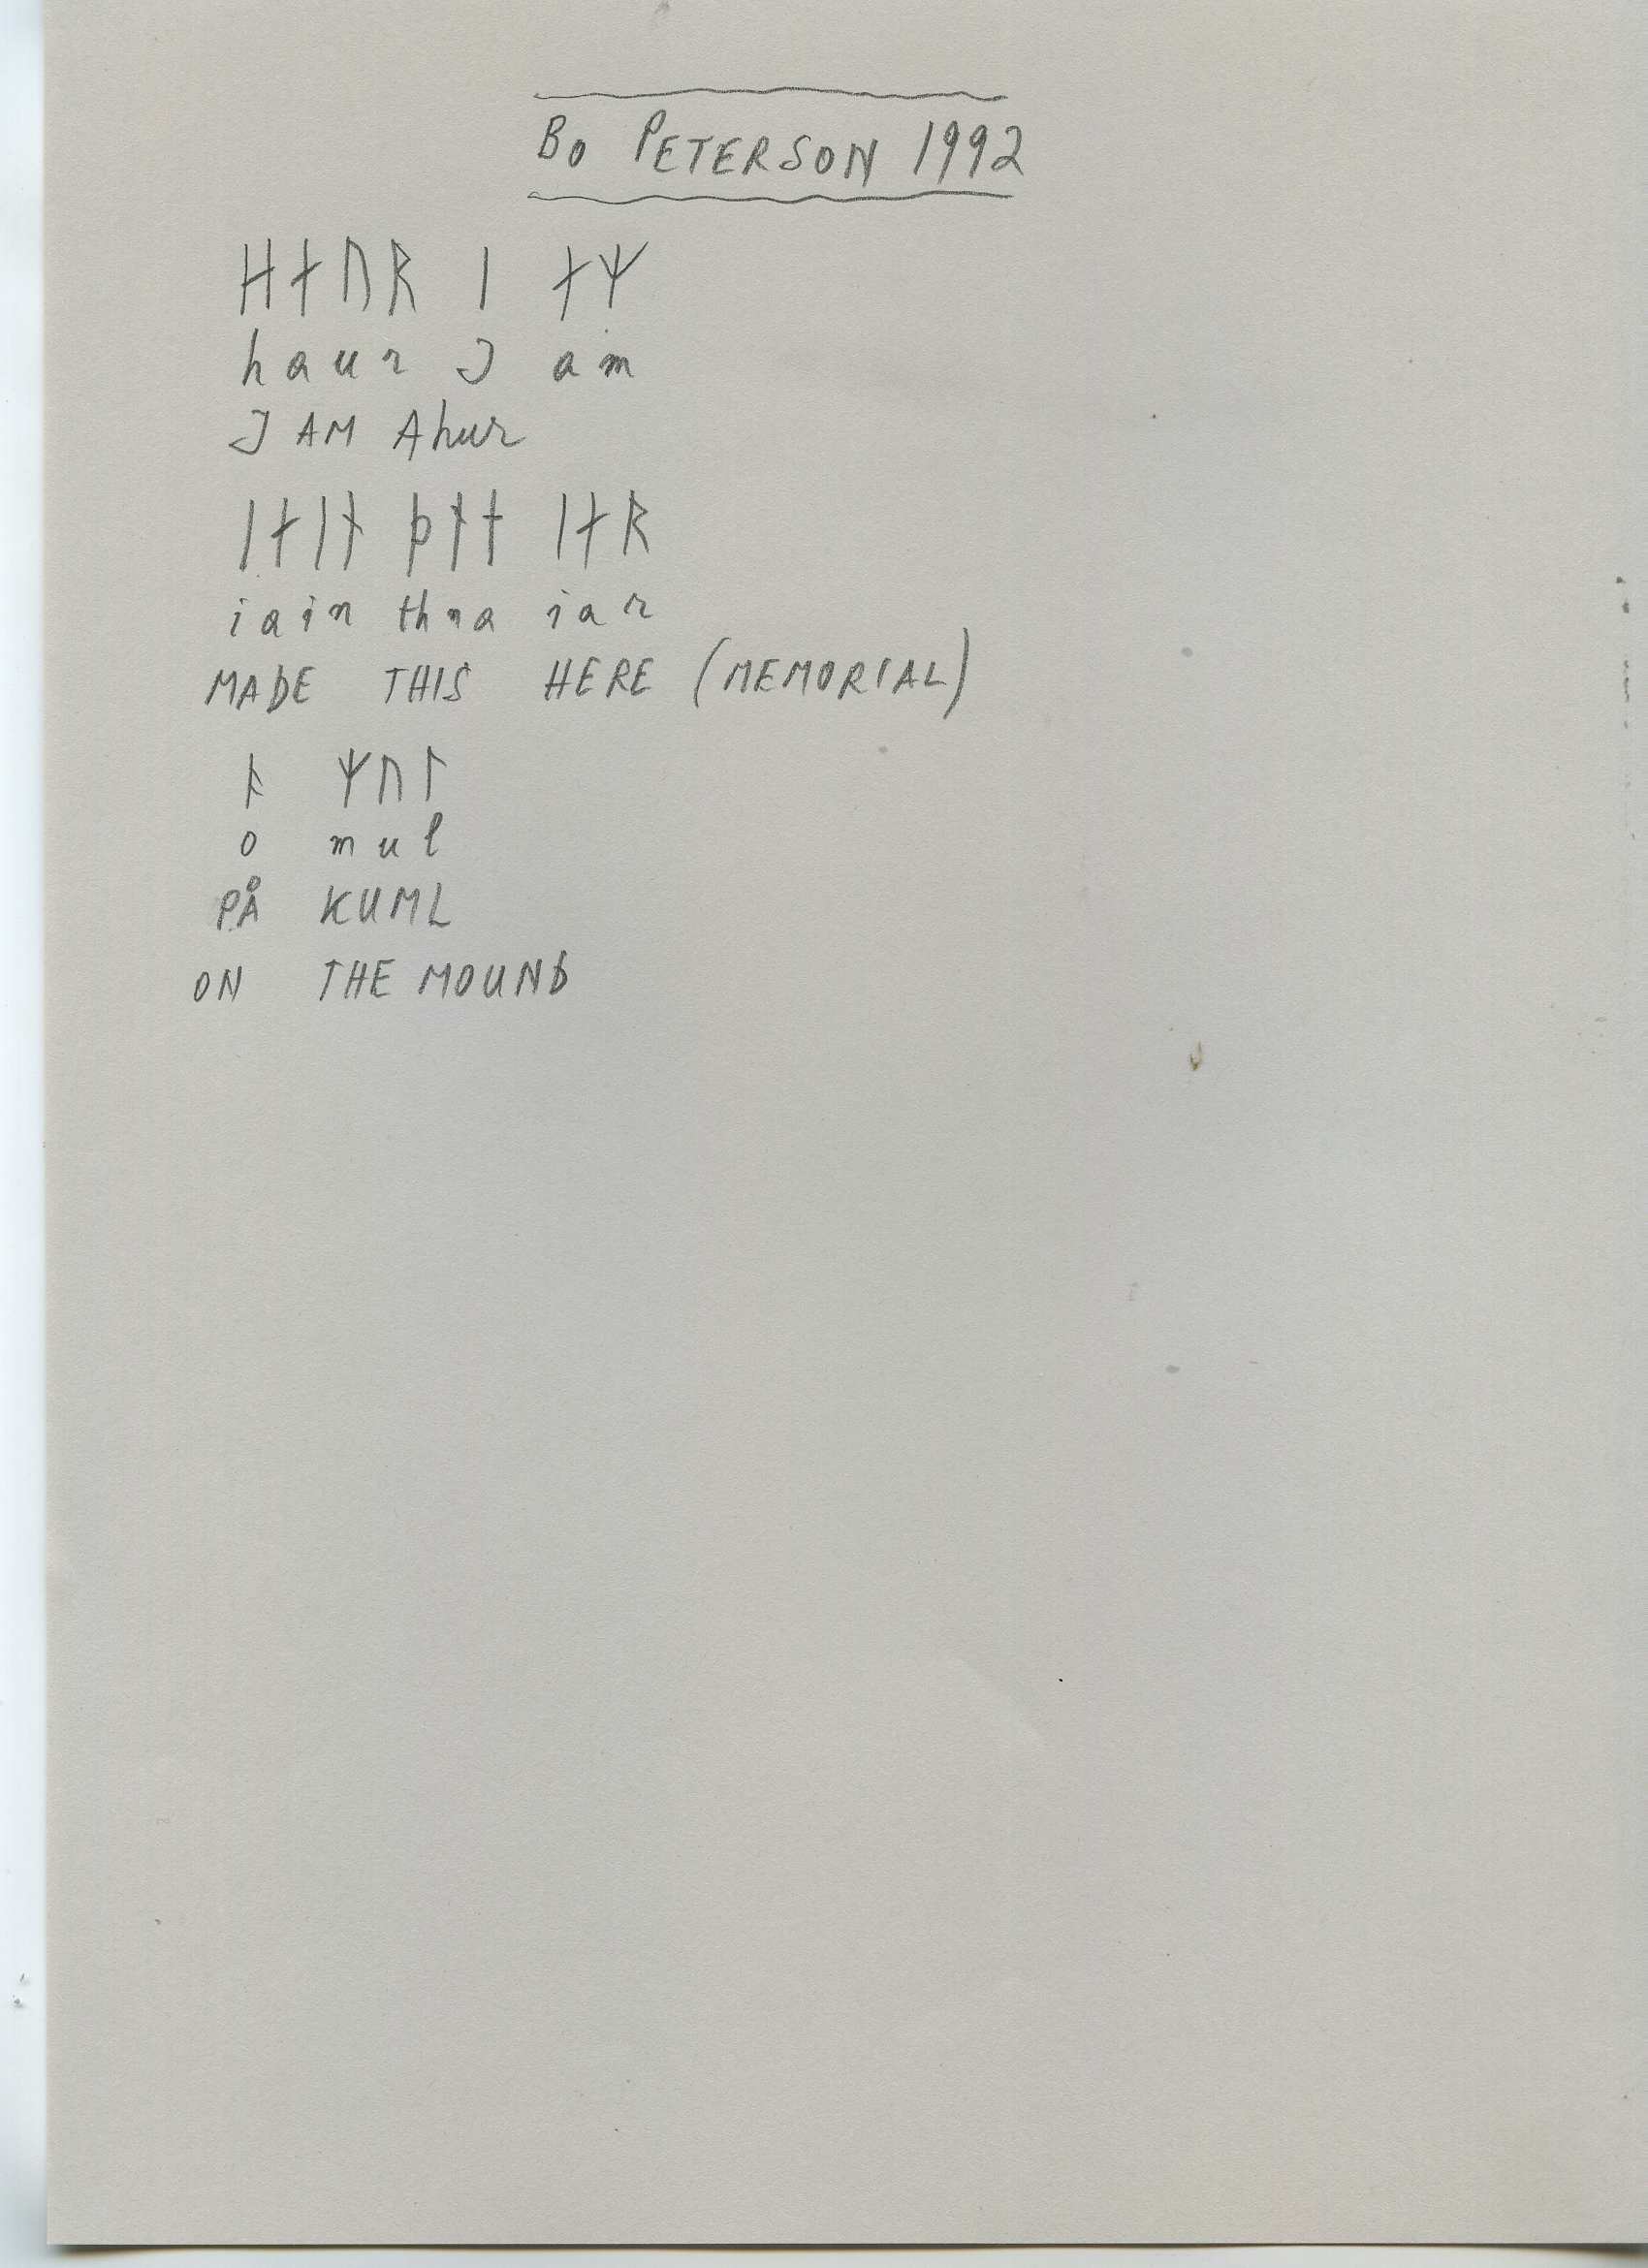 BO PETERSON 1992
ᚺᛅᚢᚱ ᛁ ᛅᛉ
haur I am
I AM Ahur
ᛁᛅᛁᚾ ᚦᚾᛅ ᛁᛅᚱ
iain thna iar
MADE THIS HERE (MEMORIAL)
ᚭ ᛉᚢᛚ
o mul
PÅ KUML
ON THE MOUND